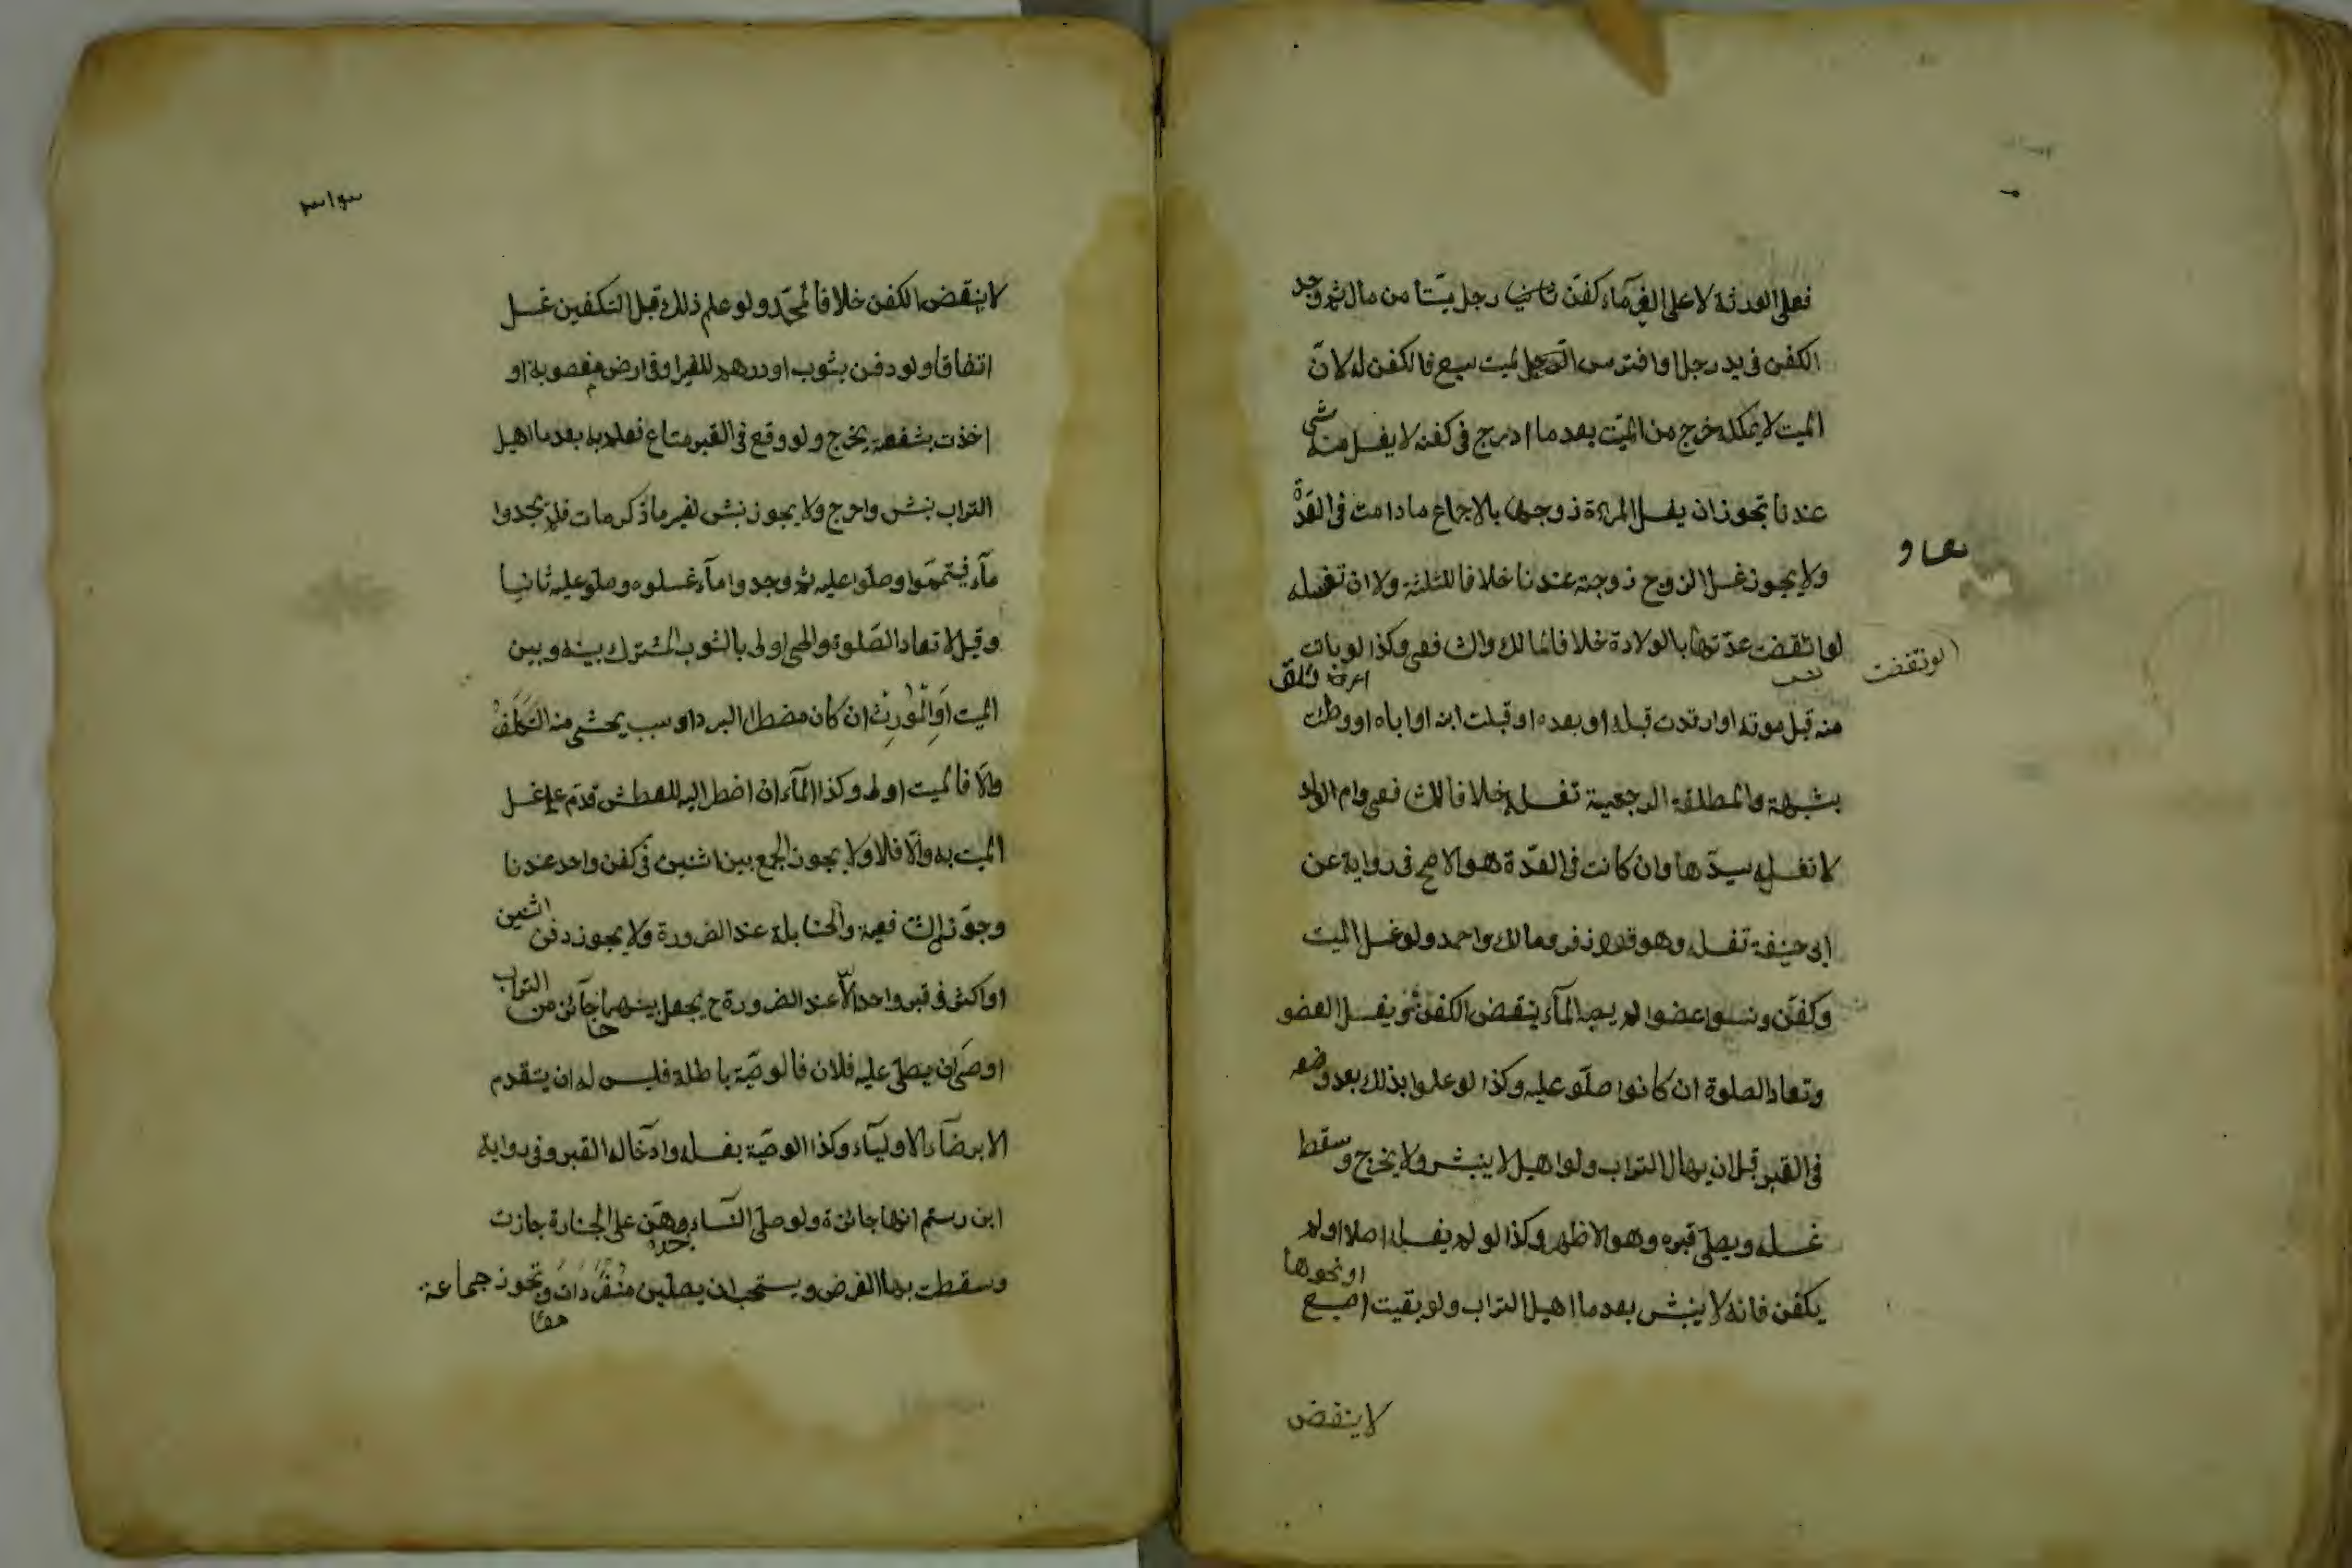 فعلى الورثة لا على الغرماء كفن رجل ميّتا من مال ثم وجد
الكفن فى يد رجل او افترس الميت سبع فالكفن له لانّ
الميت لا يملكه خرج من الميّت بعد ما ادرج فى كفنه لا يغسل منه شئ
عندنا تجوز ان يغسل المرءة زوجها بالاجماع ما دامت فى العدّة
ولا يجوز غسل الزوج زوجته عندنا خلافا للثلثة ولا ان تغسله
لو انقضت عدّتها بالولادة خلافا لمالك والشافعى وكذا لو بانت
لو نقضت
منه قبل موته او ارتدت قبله او بعده او قبلت ابنه او اباه او وطئت
بشبهة والمطلقة الرجعية تغسله خلافا للشافعى وام الولد
لا تغسل سيدّها وان كانت فى العدّة هو الاصح فى رواية عن
ابى حنيفة تغسله وهو قول زفر ومالك واحمد ولو غسل الميت
وكفّن ونسوا عضوا لم يصبه المآء ينقض الكفن ثم ويغسل العضو
وتعاد الصلوة ان كانوا صلّو عليه وكذا لو علموا بذلك بعد وضعه
فى القبر قبل ان يهال التراب ولو اهيل لا ينبش ولا يخرج وسقط
غسله ويصلّى قبره وهو الاظهر وكذا لو لم يغسل اصلا او لم
يكفن فانه لا ينبش بعد ما اهيل التراب ولو بقيت اصبع
او نحوها
لا ينقض
لا ينقض الكفن خلافا لمحمّد ولو علم ذلك قبل التكفين غسل
اتفاقا ولو دفن بثوب او درهم للغير او فى ارض مغصوبة او
اخذت بشفعة يخرج ولو وقع فى القبر متاع فعلم به بعد ما اهيل
التراب نبش واخرج ولا يجوز نبش لغير ما ذكر مات فلم يجدوا
مآء فيتمموا وصلّوا عليه ثم وجدوا مآء غسلوه وصلّو عليه ثانيا
وقيل لا تعاد الصّلوة والحى اولى بالثوب المشترك بينه وبين
الميت او المورث ان كان مضطرا لبرد او سبب يخشى منه التلف
والّا فالميت اولى وكذا المآء ان اضطر اليه للعطش قدّم على غسل
الميت به والّا فلا ولا يجوز الجمع بين اثنين فى كفن واحد عندنا
وجوّزه الشافعية والحنابلة عند الضرورة ولا يجوز دفن اثنين
او اكثر فى قبر واحد الّا عند الضرورة ح يجعل بينهما حاجز من التراب
اوصى ان يصلّى عليه فلان فالوصيّة باطلة فليس له ان يتقدم
الا برضآء الاوليآء وكذا الوصيّة بغسله وادخاله القبر وفى رواية
ابن رستم انها جائزة ولو صلّى النسآء وحدهن على الجنازة جازت
وسقطت بها الفرض ويستحب ان يصلّين منفردات وتجوز جماعة